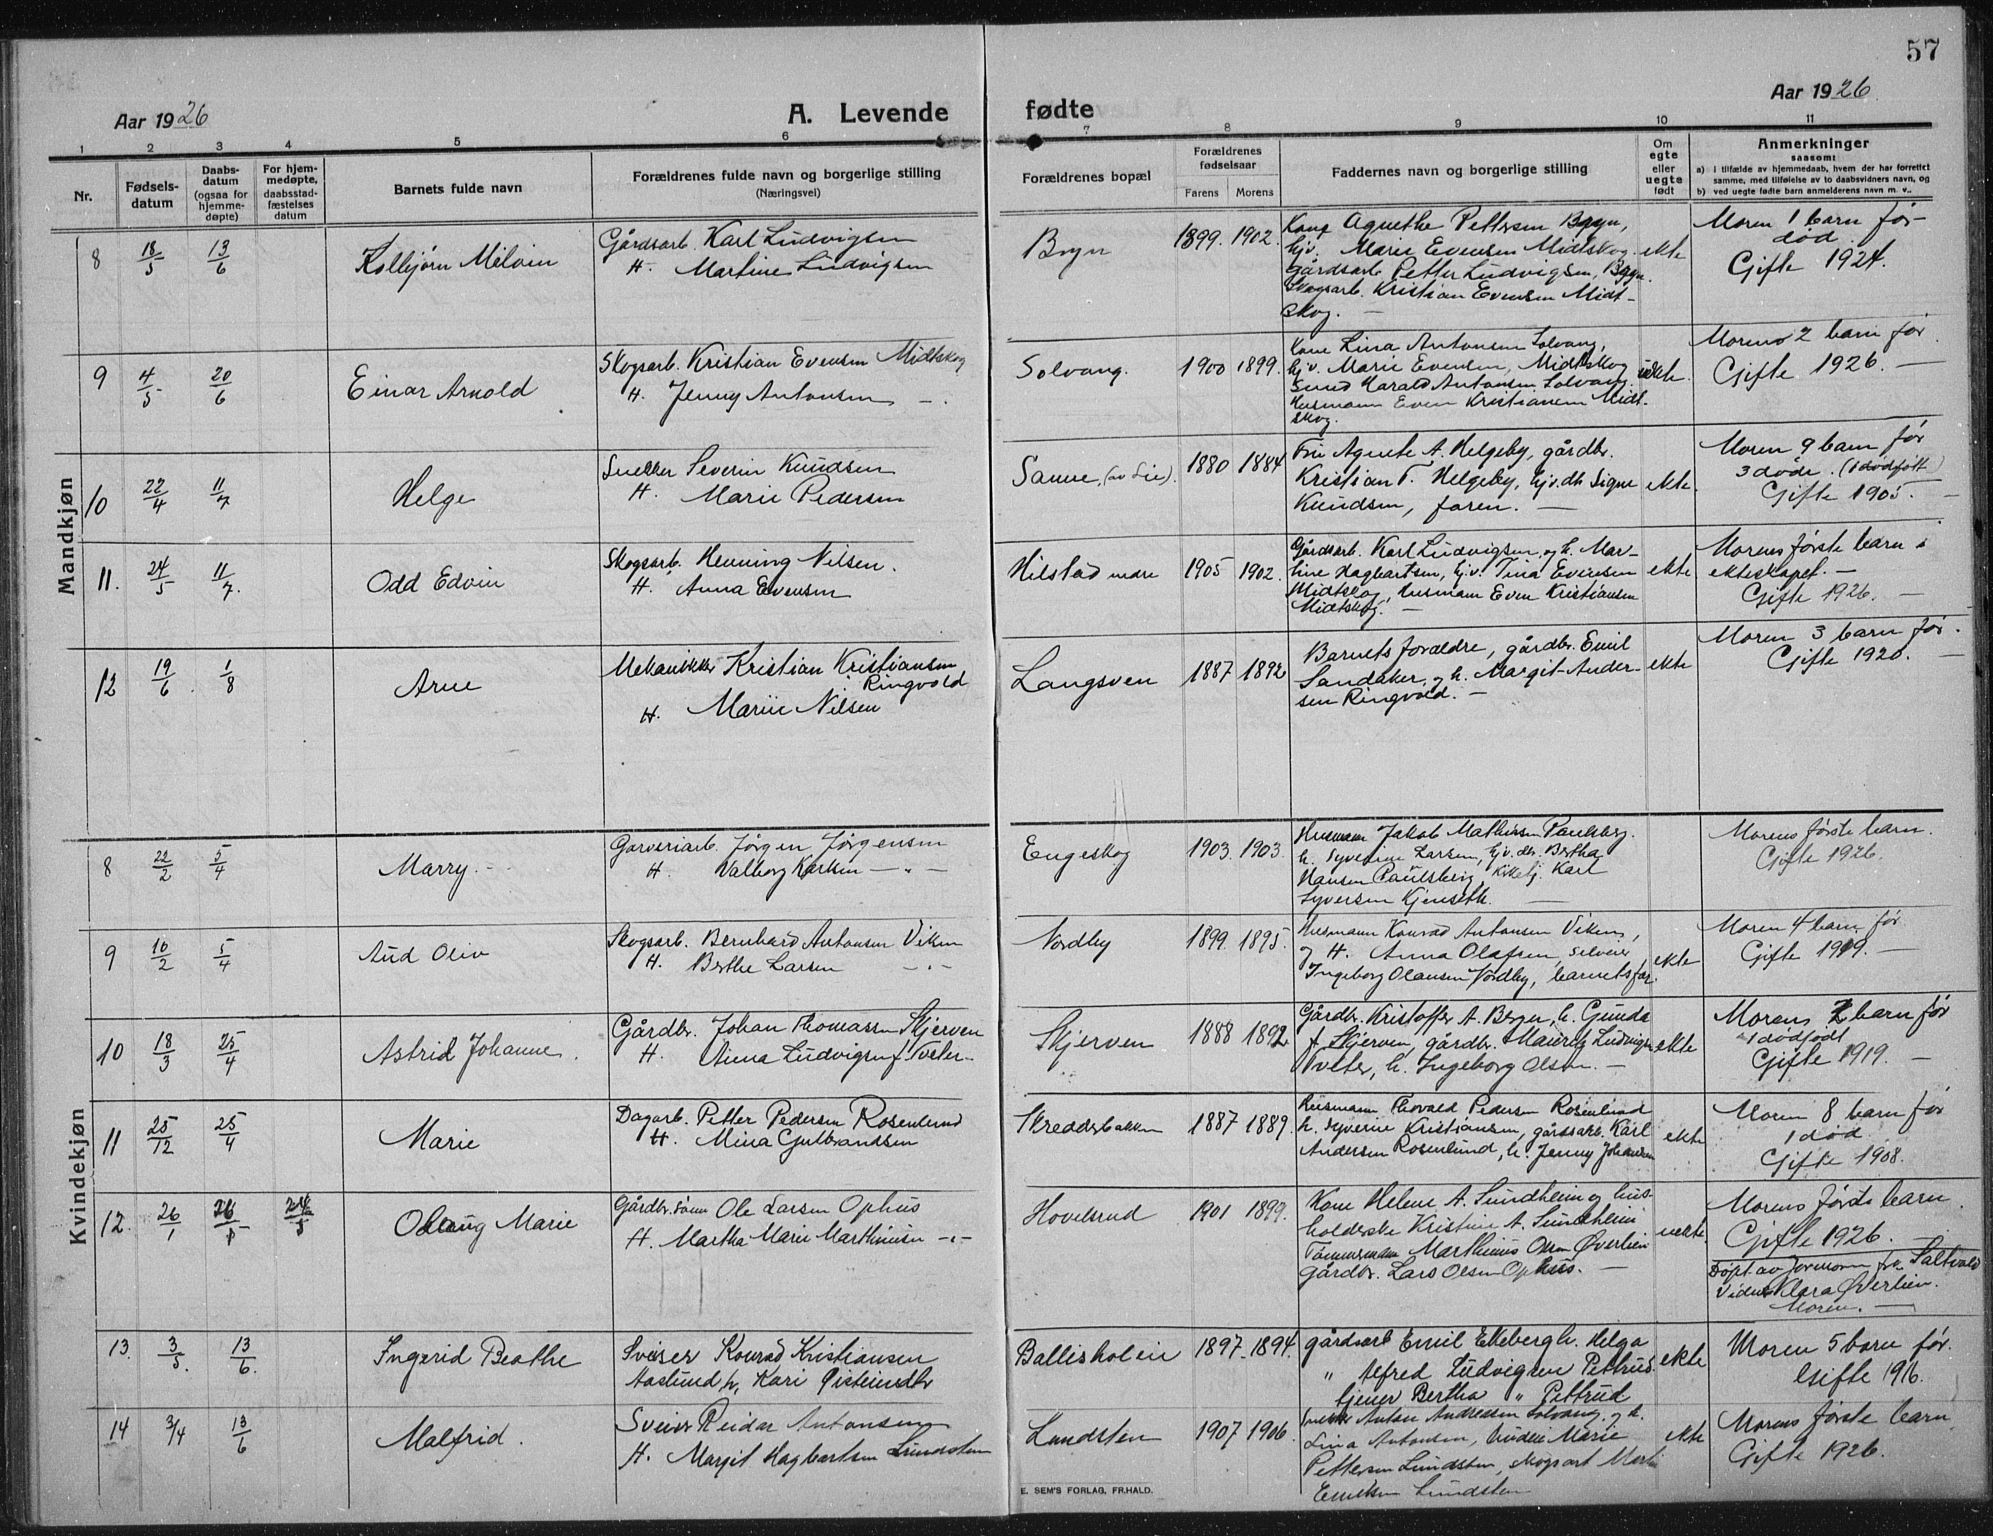 57
Aar 1926
A. Levende
fødte
Aar 1926
1 2 3 4 5 6 7 8 9 10 11
Nr.
Fødsels-
datum
Daabs-
datum
(ogsaa for
hjemme-
døpte)
For hjem-
medøpte,
daabsstad-
fæstelses
datum
Barnets fulde navn
Forældrenes fulde navn og borgerlige stilling
(Næringsvei)
Forældrenes bopæl
Forældrenes
fødselsaar
Farens Morens
Faddernes navn og borgerlige stilling
Om
egte
eller
uegte
født
Anmerkninger
saasom:
a) i tilfælde av hjemmedaab, hvem der har forrettet
samme, med tilføielse av to daabsvidners navn, og
b) ved uegte fødte barn anmelderens navn m. v..
Mandkjøn
8 18/5 13/6 Kolbjørn Melvin
Gårdsarb. Karl Ludvigsen
H. Martine Ludvigsen
Bryn 1899. 1902.
Kone Agnethe Pettersen Bryn,
hjv. Marie Evensen Midtskog
Gårdsarb. Petter Ludvigsen, Bryn.
Skogsarb. Kristian Evensen Midt-
skog. —
ekte
Moren 1 barn før-
død.
Gifte 1924.
9 4/5 20/6 Einar Arnold
Skogsarb. Kristian Evensen Midtskog
H. Jenny Antonsen
Solvang. 1900 1899.
Kone Lina Antonsen Solvang,
hjv. Marie Evensen, Midtskog
Harald Antonsen, Solvang.
Husmann Even Kristiansen Midt-
skog.
uekte.
Morens 2 barn før.
Gifte 1926. —
10 22/4 11/7 Helge
Snekker Severin Knudsen
H. Marie Pedersen
Sanne, (av Lie). 1880 1884
Fru Agnete A. Helgeby, gårdbr.
Kristian T. Helgeby, hjv. dtr Signe
Knudsen, faren. —
ekte.
Moren 9 barn før
3 døde. (1 dødfødt)
Gifte 1905. —
11. 24/5 11/7. Odd Edvin
Skogsarb. Henning Nilsen.
H. Anna Evensen
Hilstad nedre 1905 1902.
Gårdsarb. Karl Ludvigsen, og h. Mar-
tine Hagbartsen, hjv. Tina Evensen
Midtskog, husmann Even Kristiansen
Midtskog. —
ekte
Morens første barn i
ekteskapet. —
Gifte 1926. —
12 19/6 1/8 Arne
Mekaniker Kristian Kristiansen
Ringvold
H. Marie Nilsen
Langsven 1887 1892
Barnets foreldre, gårdbr. Emil
Sandaker, og h. Margit Ander-
sen Ringvold. —
ekte
Moren 3 barn før.
Gifte 1920. —
Kvindekjøn
8 22/2 5/4 Marry. —
Garveriarb. Jørgen Jørgensen
H. Valborg Karlsen —„—
Engeskog 1903. 1903.
Husmann Jakob Mathisen Paulsberg.
h. Syverine Larsen, hjv. dtr. Bertha
Hansen Paulsberg, Karl
Syversen Kjenseth. —
Morens første barn.
Gifte 1926.
9 16/2 5/4 Aud Oliv
Skogsarb. Bernhard Antonsen Viken
H. Berthe Larsen —„—
Nordby 1899. 1895.
Husmann Konrad Antonsen Viken,
og H. Anna Olafsen,
Ingeborg Olausen Nordby, barnets far.
ekte
Moren 4 barn før.
Gifte 1919. —
10 18/3 25/4 Astrid Johanne.
Gårdbr. Johan Thomassen Skjerven
H. Anna Ludvigsen f. Tveter-
Skjerven 1888 1892
Gårdbr. Kristoffer A. Berger, h. Gunda
f. Skjerven, gårdbr. Mauritz Ludvigsen
Tveter, h. Ingeborg Olsen. —
ekte
Morens 2 barn før
1 dødfødt
Gifte 1919. —
11 25/12 25/4 Marie
Dagarb. Petter Pedersen Rosenlund
H. Mina Gulbrandsen
Skredderbakken 1887 1889.
Husmann Thorvald Pedersen Rosenlund
h. Syverine Kristiansen, gårdsarb. Karl
Andersen Rosenlund, h. Jenny Johansen
ekte
Moren 8 barn før
1 død
Gifte 1908.
12. 26/1 Oddlaug Marie
Gårdbr. sønn Ole Larsen Ophus
H. Martha Marie Marthinsen —„—
Hovelsrud 1901 1899.
Kone Helene A. Sundheim og hus-
holderske Kristine A. Sundheim
Tømmermann Marthinus Olsen Øverlien
gårdbr. Lars Olsen Ophus. —
uekte.
Morens første barn.
Gifte 1926. —
Døpt av jormoren frk. Saltvold
Vidner Klara Øverlien.
Moren. —
13. 3/5. 13/6. Ingerid Beathe
Sveiser Konrad Kristiansen
Aaslund h. Kari Øisteinsdtr
Ballisholen 1897. 1894.
gårdsarb Emil Ekeberg h. Helga
„ Alfred Ludvigsen Pettrud.
tjener Bertha „ Pettrud
ekte
Moren 5 barn før.
Gifte 1916.
14 3/4 13/6 Malfrid.
Sveiser Reidar Antonsen
H. Margit Hagbartsen Lundsten
Lundsten 1907 1906.
Anton Andreassen Solvang. og h.
Lina Antonsen, Marie
Pettersen Lundsten, skogsarb Martin
Emilsen Lundsten
ekte
Morens første barn
Gifte 1926.
E. SEM'S FORLAG, FR.HALD.